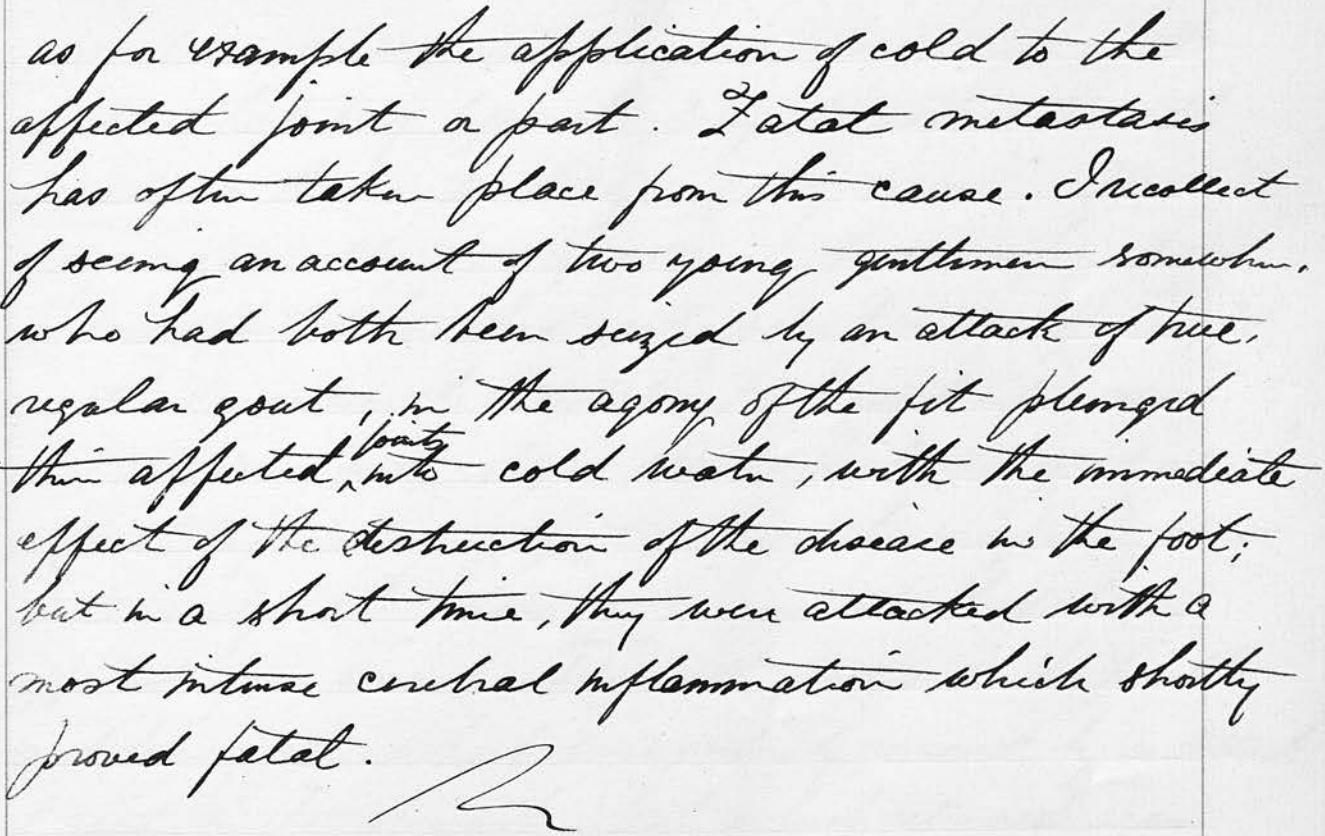 as for example the application of cold to the
affected joint or part. Fatal metastasis
has often taken place from this cause. I recollect
of seeing an account of two young gentlemen somewhere.
who had both been seized by an attack of true.
regular gout, in the agony of the fit plunged
their affected joints into cold water, with the immediate
effect of the destruction of the disease in the foot;
but in a short time, they were attacked with a
most intense cerebral inflammation which shortly
proved fatal.